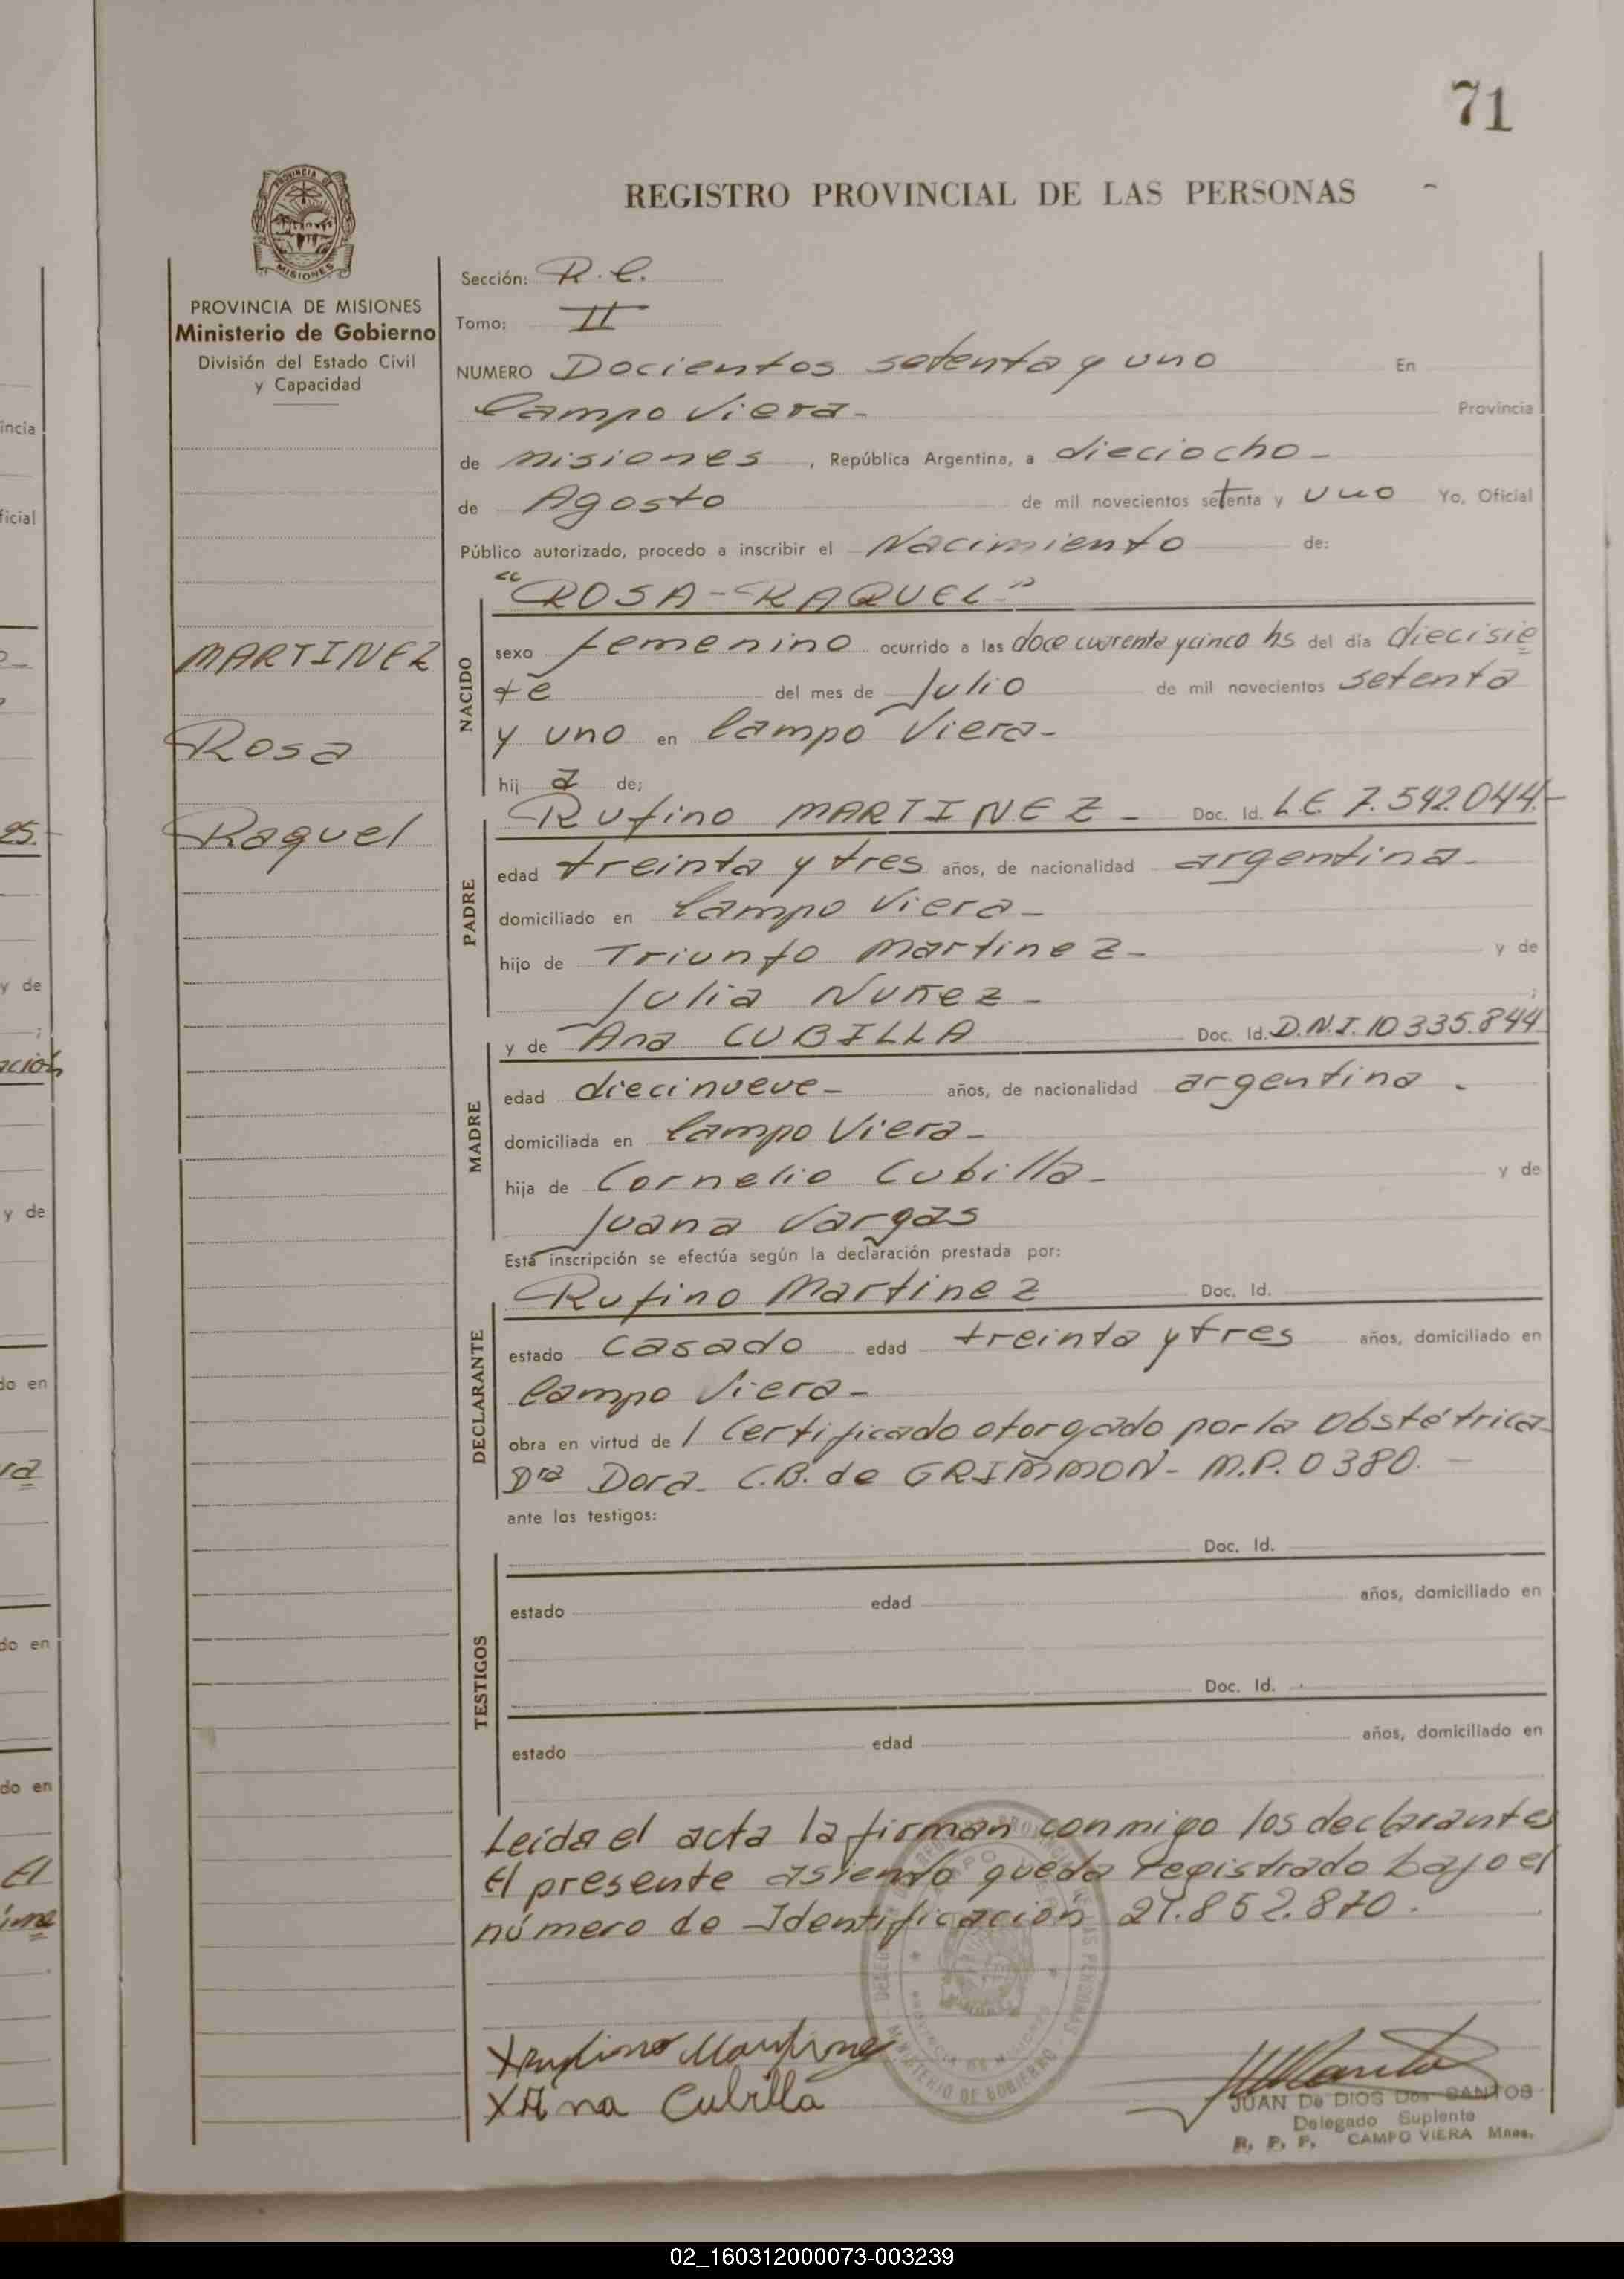 71
REGISTRO PROVINCIAL DE LAS PERSONAS
PROVINCIA DE
MISIONES
PROVINCIA DE MISIONES
Ministerio de Gobierno
División del Estado Civil
y Capacidad
MARTINEZ
Rosa
Raquel
Sección: R.C.
Tomo: II
NUMERO Docientos setenta y uno En
Campo Viera - Provincia
de Misiones, República Argentina, a dieciocho -
de Agosto de mil novecientos setenta y uno Yo, Oficial
Público autorizado, procedo a inscribir el Nacimiento de:
"ROSA-RAQUEL"
NACIDO
sexo femenino ocurrido a las doce cuarenta y cinco hs del día diecisie
te del mes de Julio de mil novecientos setenta
y uno en Campo Viera-
hij a de;
PADRE
Rufino MARTINEZ - Doc. Id. L.E. 7.542.044.-
edad treinta y tres años, de nacionalidad argentina-
domiciliado en Campo Viera-
hijo de Triunfo Martinez- y de
Julia Nuñez- ;
MADRE
y de Ana CUBILLA Doc. Id. D.N.I. 10335.844
edad diecinueve- años, de nacionalidad argentina.
domiciliada en Campo Viera-
hija de Cornelio Cubilla- y de
Juana Vargas
Esta inscripción se efectúa según la declaración prestada por:
DECLARANTE
Rufino Martinez Doc. Id.
estado casado edad treinta y tres años, domiciliado en
Campo Viera-
obra en virtud de 1 Certificado otorgado por la Obstétrica
Dra Dora. C.B. de GRIMMON- M.P. 0380. -
ante los testigos:
TESTIGOS
Doc. Id.
estado edad años, domiciliado en
Doc. Id.
estado edad años, domiciliado en
Leída el acta la firman conmigo los declarantes
El presente asiento queda registrado bajo el
número de Identificación 21.852.870.
MINISTERIO DE GOBIERNO
X Rufino Martinez
X Ana Cubilla
JUAN De DIOS Dos SANTOS
Delegado Suplente
R. P. P. CAMPO VIERA Mnes.
incia
ficial
25.-
y de
ación
y de
do en
do en
do en
El
02_160312000073-003239